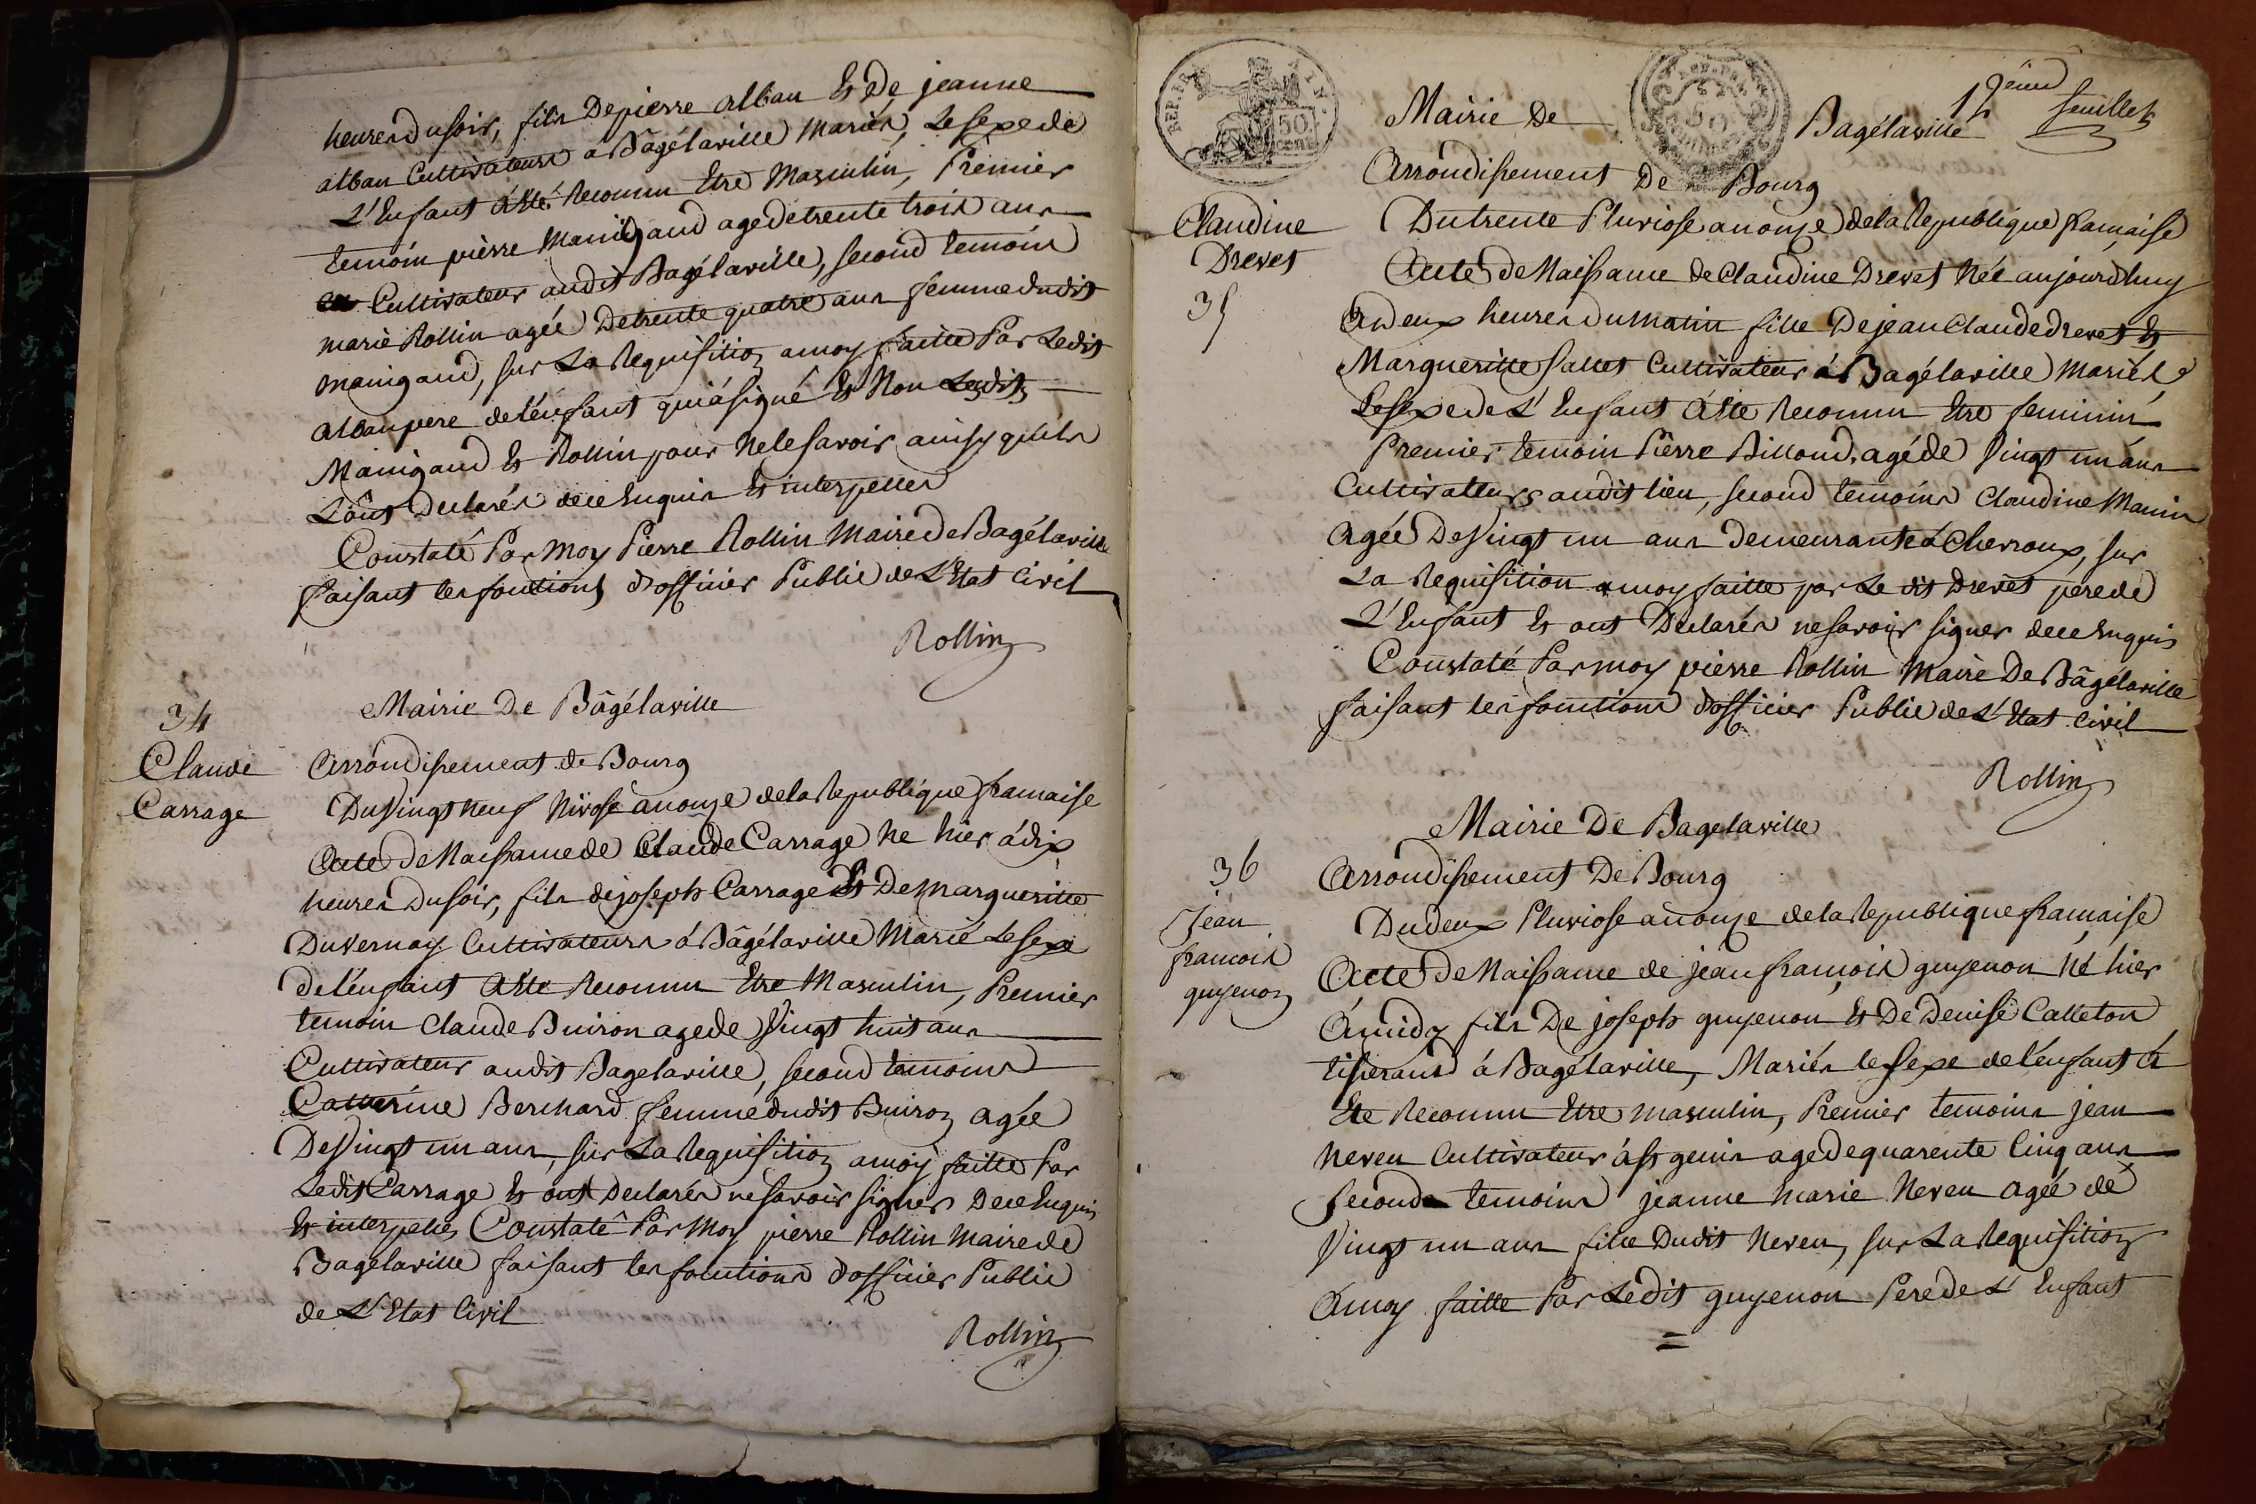 heures du soir, fils de pierre alban Et de jeanne
alban Cultivateurs à Bagélaville mariés, Le sexe de
L'Enfant à Eté Reconnu Etre Masculin, Premier
temoin pièrre Manigaud age de trente trois ans
Cultivateur audit Bagélaville, second temoin
marie Rollin agée De trente quatre ans femme dudit
manigaud, sur La Requisition a moy faitte Par Ledit
alban pere de l'énfant qui à signé Et Non Lesdits
Manigaud Et Rollin pour Ne le savoir ainsy qu'ils
L'ont Declarés de ce Enquis Et interpellés
Constaté Par Moy Pierre Rollin Maire de Bagélaville
faisant les fonctions d'officier Public de L'Etat Civil
Rollin
34
Mairie De Bâgélaville
Claude
Carrage
Arrondissement de Bourg
Du Vingt neuf Nivose an onze de la Republique francaise
Acte de Naissance de Claude Carrage Ne hier à dix
heures Du soir, fils de joseph Carrage Et De margueritte
Duvernay Cultivateurs à Bâgélaville Marié Le sexe
de l'énfant à Eté Reconnu Etre Masculin, Premier
temoin Claude Buiron age de Vingt huit ans
Cultivateur audit Bagelaville, second temoins
Catherine Berchard femme dudit Buiron agée
De Vingt un ans, sur La Requisition a moy faitte Par
Ledit Carrage Et ont Declarés ne savoir signer De ce Enquis
Et interpellés, Constaté Par Moy pierre Rollin Maire de
Bagelaville faisant les fonctions d'officier Public
de L'Etat Civil
Rollin
REP. FRA. 50 cent
12eme feuillet
Mairie De Bagélaville
Arrondissement De Bourg
Claudine
Drevet
35
Du trente Pluviose an onze de la Republique francaise
Acte de Naissance de Claudine Drevet Née aujourdhuy
à deux heures du matin fille De jean Claude drevet Et
Margueritte Sallet Cultivateur à Bagélaville Mariés
Le sexe de L'Enfant à Eté Reconnu Etre feminin
Premier temoin Pièrre Billoud, agé de Vingt un ans
Cultivateurs audit lieu, second temoins Claudine Manin
agée De Vingt un ans demeurante à Chevroux, sur
La Requisition a moy faitte par Le dit Drevet pere de
L'Enfant Et ont Declarés ne savoir signer de ce Enquis
Constaté Par moy pierre Rollin Maire De Bâgélaville
faisant les fonctions d'officier Public de L'Etat Civil
Rollin
Mairie De Bagelaville
36
Jean
francois
guyenon
Arrondissement De Bourg
Du deux Pluviose an onze de la Republique francaise
Acte de Naissance de jean françois guyenon Né hier
à midy fils De joseph guyenon Et De Denise Catteton
tisserand à Bagélaville, Mariés le sexe de l'énfant à
Eté Reconnu Etre masculin, Premier temoins jean
Neveu Cultivateur à st genis age de quarente Cinq ans
second temoins jeanne Marie Neveu agée de
Vingt un ans fille Dudit Neveu, sur La Requisition
à moy faitte Par Ledit guyenon Pere de L'Enfant